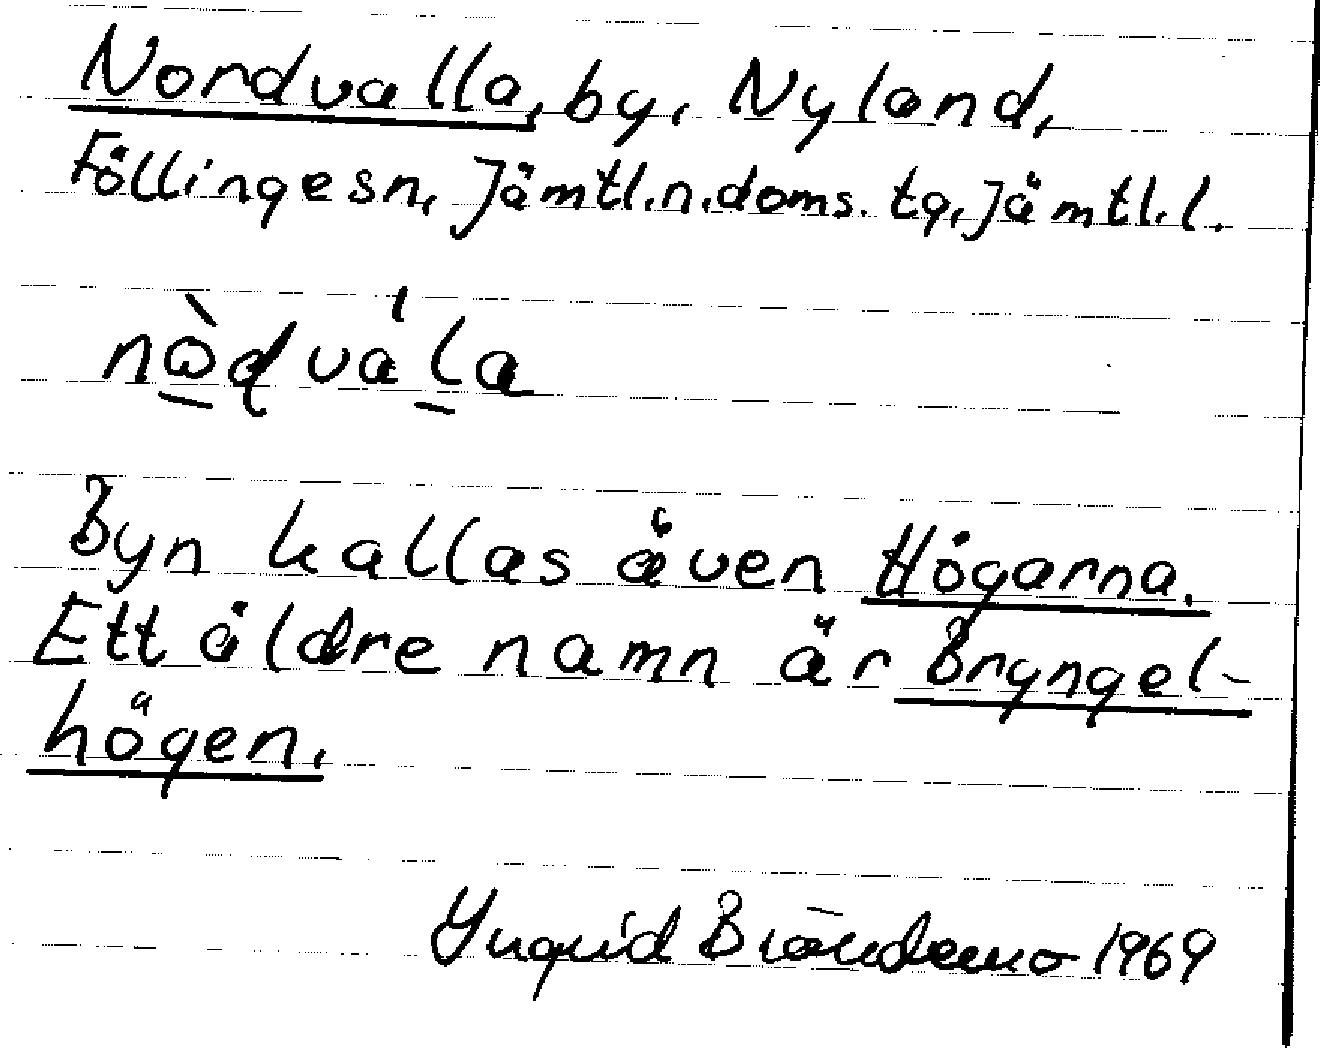 Nordvalla, by, Nyland,
Föllingesn, Jämtl.n.doms. tg, Jämtl.l.
nò̱dvá'ḻa
Byn kallas även Högarna.
Ett äldre namn är Bryngel-
högen.
Yngvid Brändemo 1969